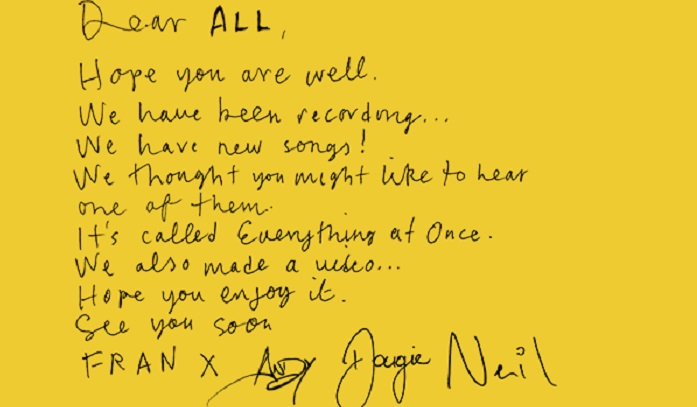 Dear ALL,
Hope you are well.
We have been recording...
We have new songs!
We thought you might like to hear
one of them.
It's called Everything at Once.
We also made a video...
Hope you enjoy it.
See you soon
FRAN X Andy Dougie Neil